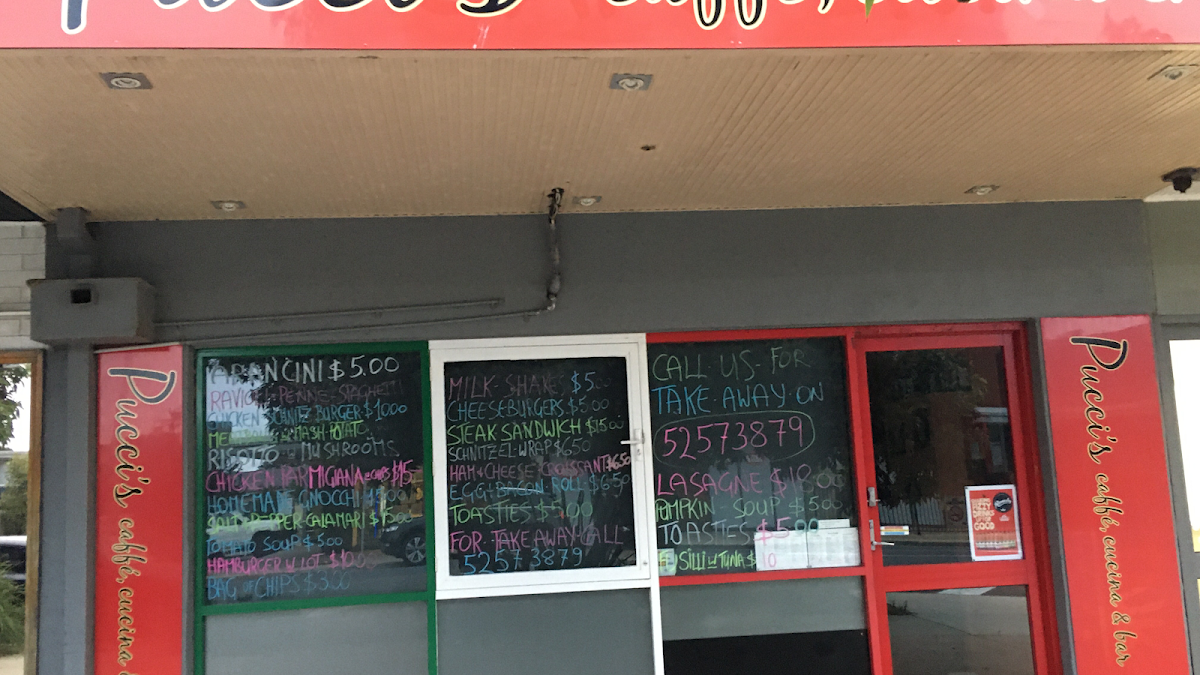 Pucci's caffé,
Pucci's caffé, cucina &
ARANCINI $5.00
RAVIOLI-PENNE-SPAGHETTI
CHICKEN SCHNITZ BURGER $10.00
MASH POTATE
RISOTTO MUSHROOMS
CHICKEN PARMIGIANA & CHIPS $15
HOMEMADE GNOCCHI
SALT & PEPPER CALAMARI $15.00
TOMATO SOUP $5.00
HAMBURGER W. LOT $10.00
BAG OF CHIPS $3.00
MILK-SHAKE $5.00
CHEESEBURGERS $5.00
STEAK SANDWICH $15.00
SCHNITZEL-WRAP $6.50
HAM & CHEESE CROISSANT $6.50
EGG & BACON ROLL $6.50
TOASTIES $5.00
FOR TAKE AWAY CALL
52573879
CALL US FOR
TAKE AWAY ON
52573879
LASAGNE $18.00
PUMPKIN SOUP $5.00
TOASTIES $5.00
FUSILLI W TUNA $10
FIZZY
DRINKS
FOR
GOOD
Pucci's caffé, cucina & bar